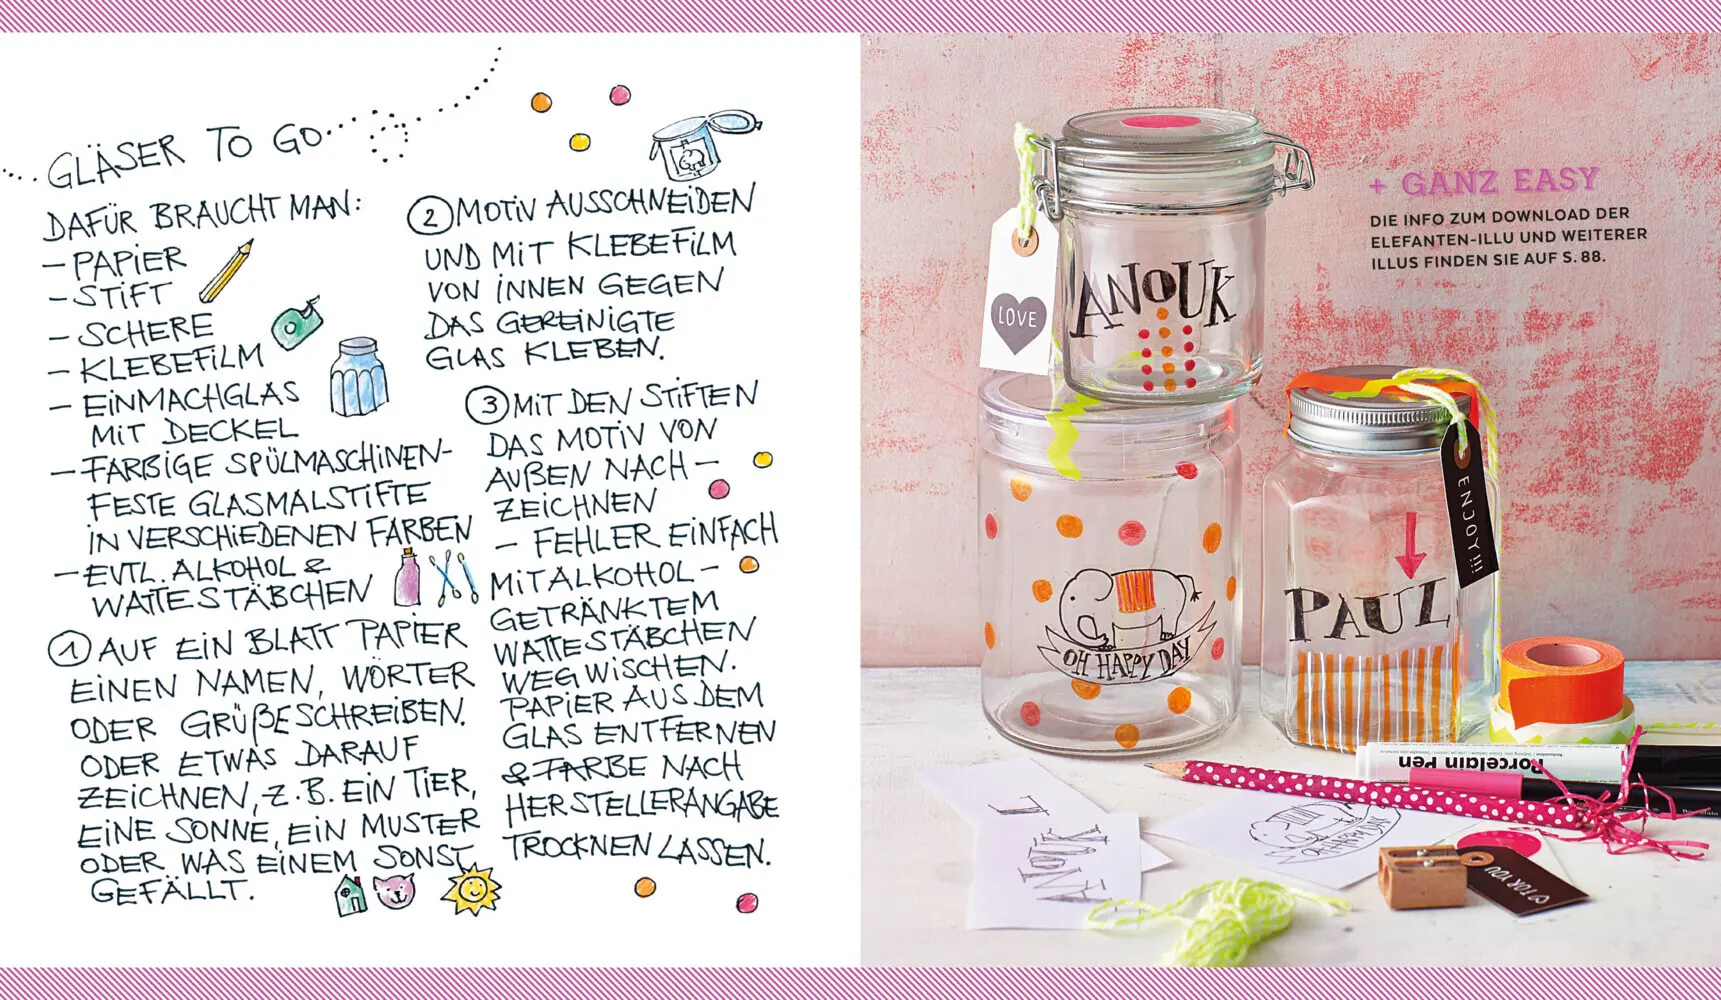 GLÄSER TO GO
DAFÜR BRAUCHT MAN:
– PAPIER
– STIFT
– SCHERE
– KLEBEFILM
– EINMACHGLAS
MIT DECKEL
– FARBIGE SPÜLMASCHINEN-
FESTE GLASMALSTIFTE
IN VERSCHIEDENEN FARBEN
– EVTL. ALKOHOL &
WATTESTÄBCHEN
1 AUF EIN BLATT PAPIER
EINEN NAMEN, WÖRTER
ODER GRÜßE SCHREIBEN.
ODER ETWAS DARAUF
ZEICHNEN, Z.B. EIN TIER,
EINE SONNE, EIN MUSTER
ODER WAS EINEM SONST
GEFÄLLT.
2 MOTIV AUSSCHNEIDEN
UND MIT KLEBEFILM
VON INNEN GEGEN
DAS GEREINIGTE
GLAS KLEBEN.
3 MIT DEN STIFTEN
DAS MOTIV VON
AUßEN NACH –
ZEICHNEN
– FEHLER EINFACH
MIT ALKOHOL –
GETRÄNKTEM
WATTESTÄBCHEN
WEGWISCHEN.
PAPIER AUS DEM
GLAS ENTFERNEN
& FARBE NACH
HERSTELLERANGABE
TROCKNEN LASSEN.
+ GANZ EASY
DIE INFO ZUM DOWNLOAD DER
ELEFANTEN-ILLU UND WEITERER
ILLUS FINDEN SIE AUF S. 88.
LOVE
ANOUK
ENJOY!!!
PAUL
OH HAPPY DAY
Porcelain Pen
OH HAPPY DAY
ANOUK
FOR YOU